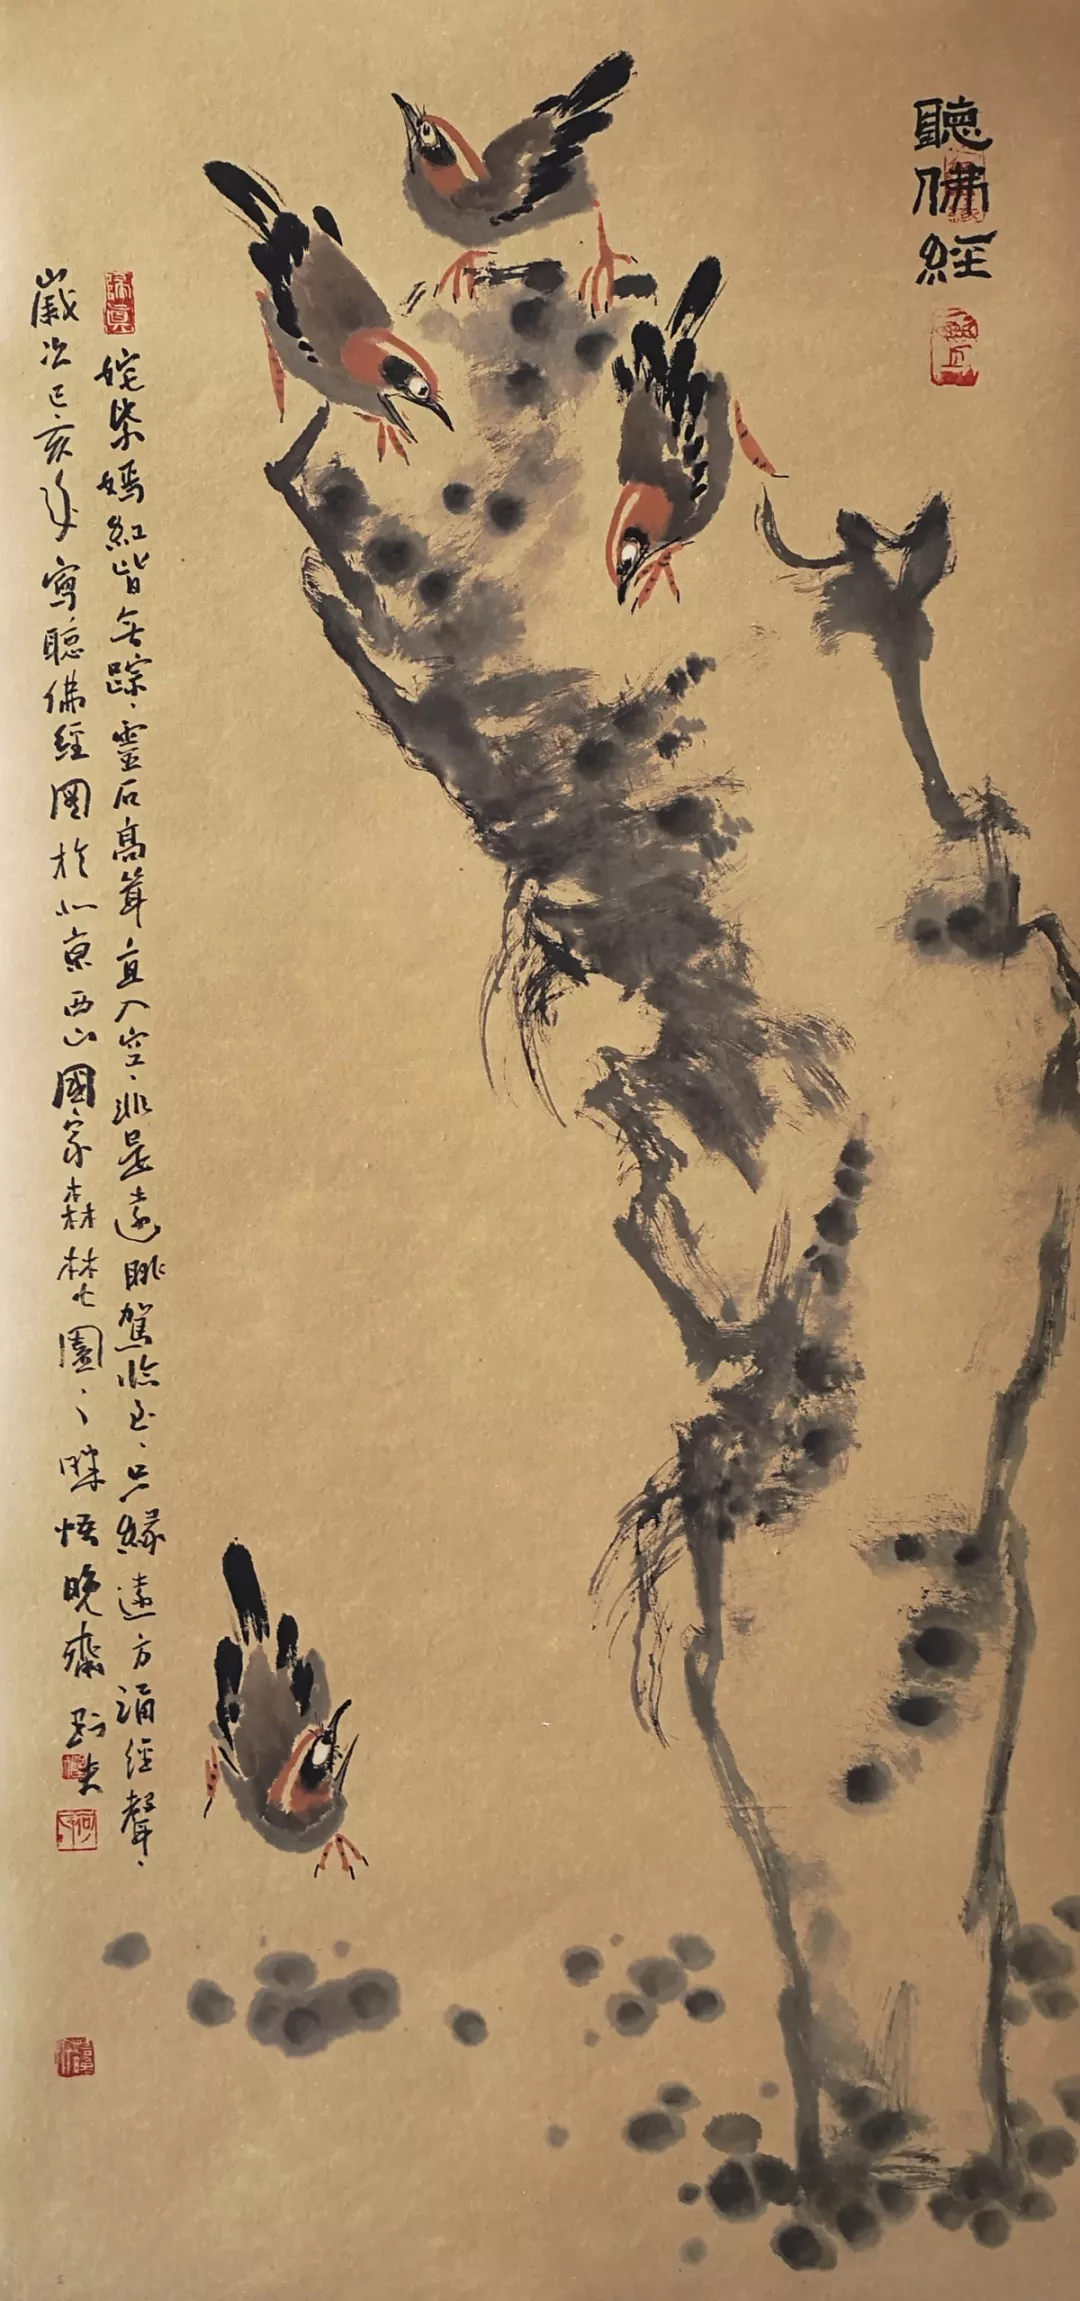 聽佛經
姹紫嫣紅皆无踪、靈石高耸直入空、非是遠眺临、只緣遠方诵經聲、
歲次己亥年寫聽佛經图於北京西山國家森林公園悟晚齋